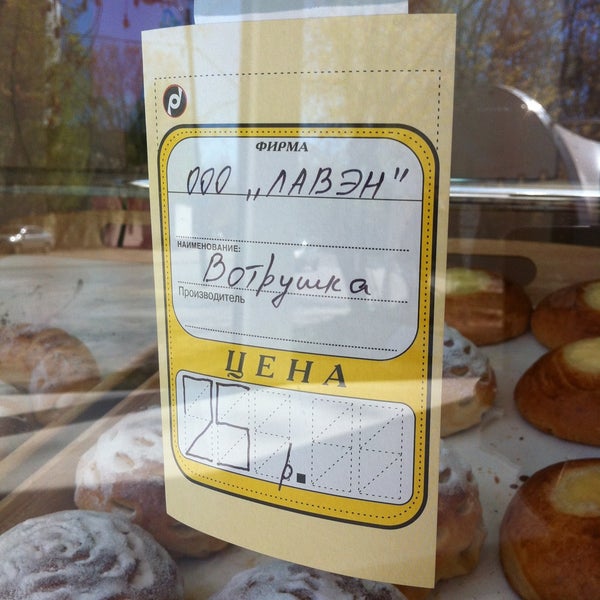 ФИРМА
ООО „ЛАВЭН"
НАИМЕНОВАНИЕ:
Вотрушка
Производитель
ЦЕНА
25 р.